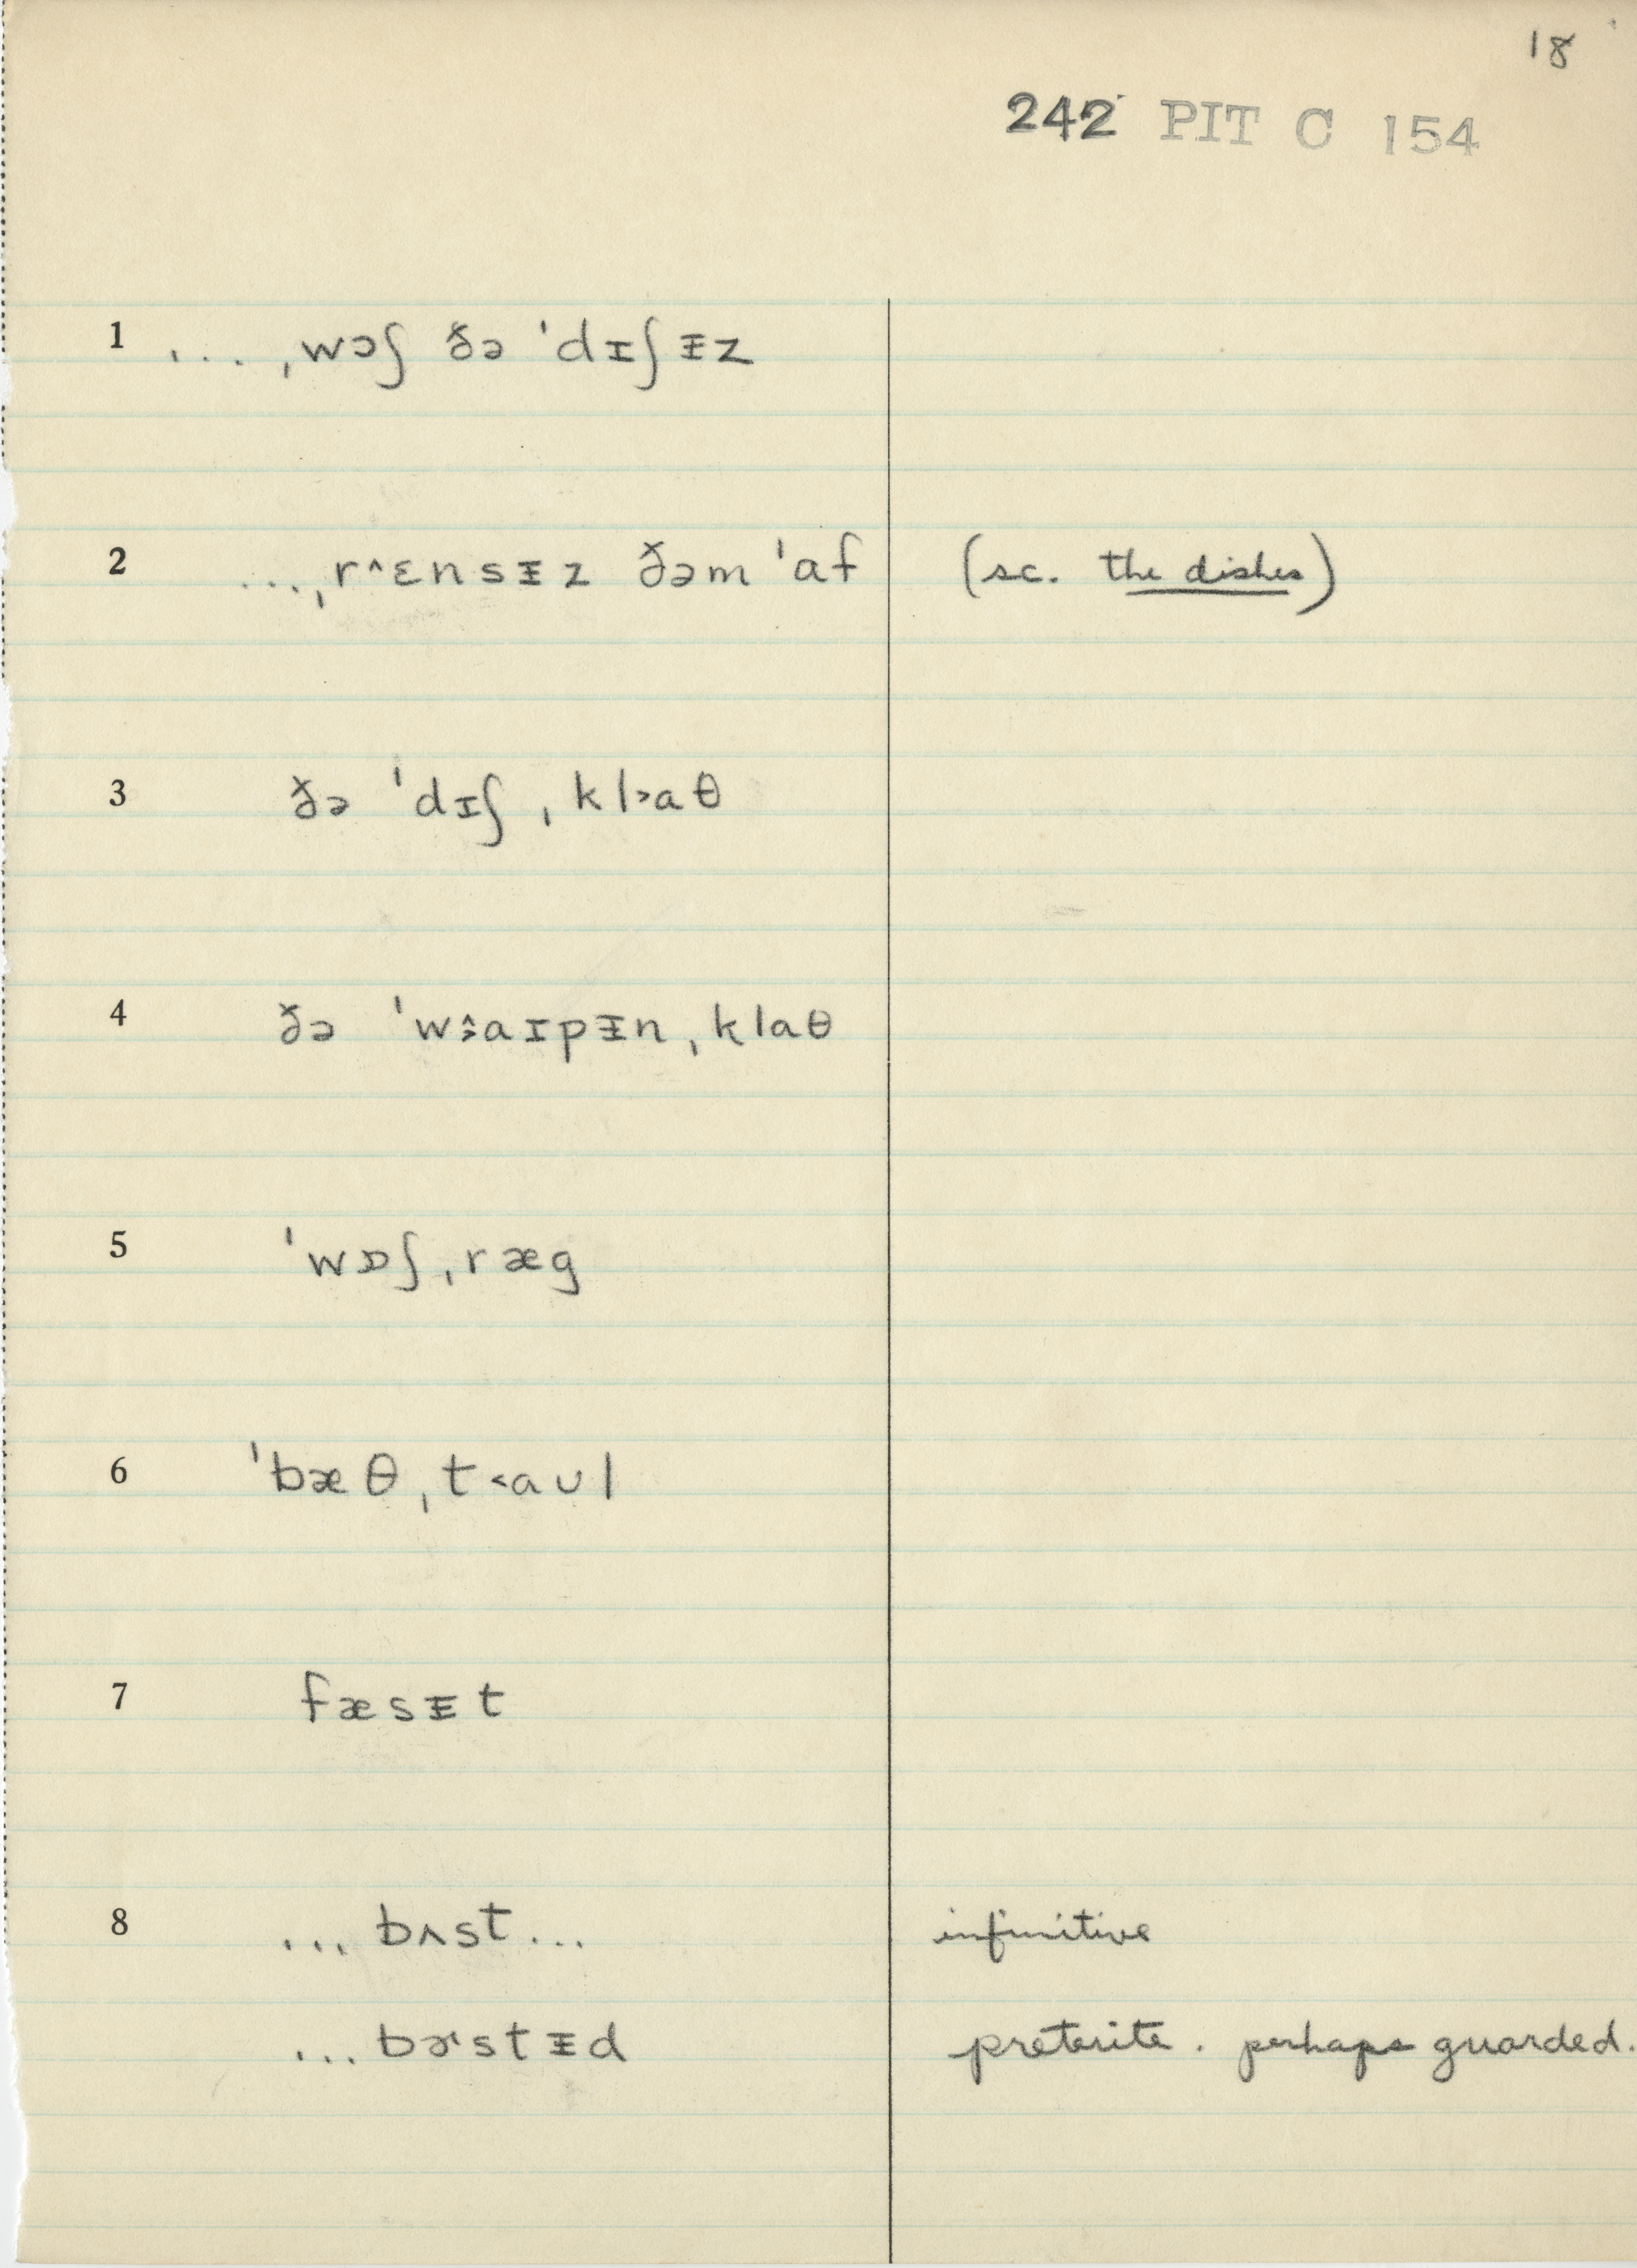 18
242 PIT C 154
1 ... ˌwɔʃ ðə ˈdɪʃᵻz
2 ... ˌr^ɛnsᵻz ðəm ˈɑf (sc. the dishes)
3 ðə ˈdɪʃ ˌkl˃ɑθ
4 ðə ˈw˃̂aɪpᵻn ˌklɑθ
5 ˈwɒʃ ˌræg
6 ˈbæθ ˌt˂ɑʊl
7 fæsᵻt
8 ... bʌst ... infinitive
... bɚstᵻd preterite. perhaps guarded.